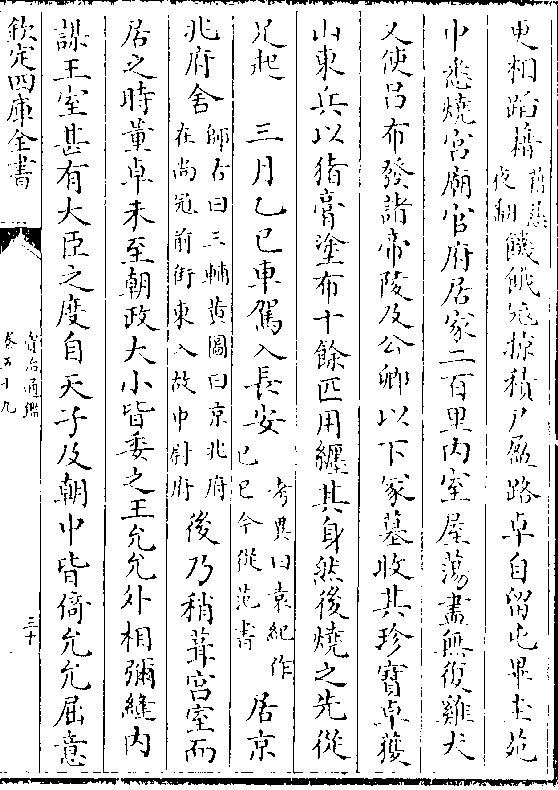 更相蹈藉前慈夜翻饑餓寇掠積尸盈路卓自留屯畢圭苑
中悉燒宮廟官府居家二百里内室屋蕩盡無復雞犬
又使吕布發諸帝陵及公卿以下冢墓收其珍寳卓獲
山東兵以猪膏塗布十餘匹用纒其身然後燒之先從
足起 三月乙巳車駕入長安考異曰袁紀作已巳今從范書居京
兆府舍師古曰三輔黄圖曰京兆府在尚冠前街東入故中尉府後乃稍葺宫室而
居之時董卓未至朝政大小皆委之王允允外相彌縫内
謀王室甚有大臣之度自天子及朝中皆倚允允屈意
欽定四庫全書
資治通鑑
卷五十九
三十